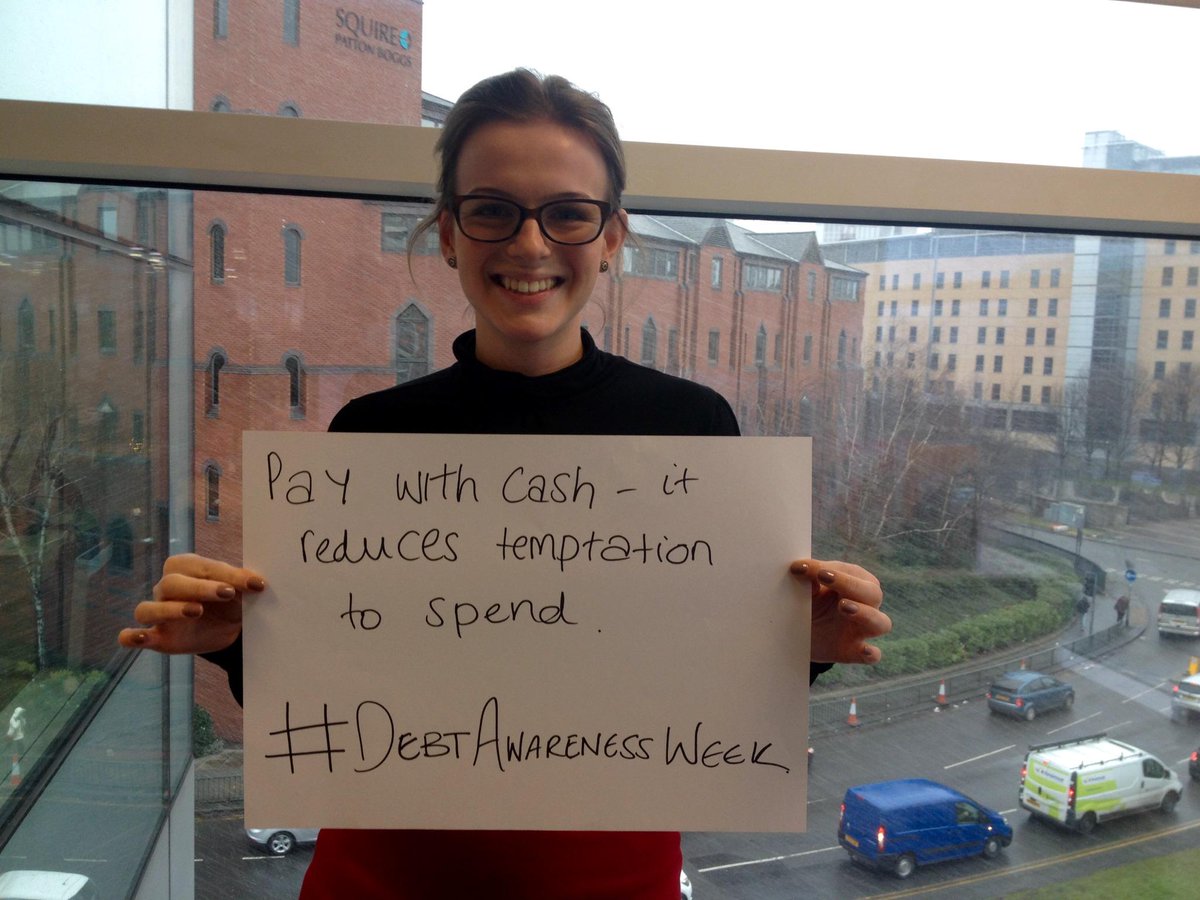 SQUIRE
PATTON BOGGS
Pay with cash - it
reduces temptation
to spend.
#DEBTAWARENESSWEEK